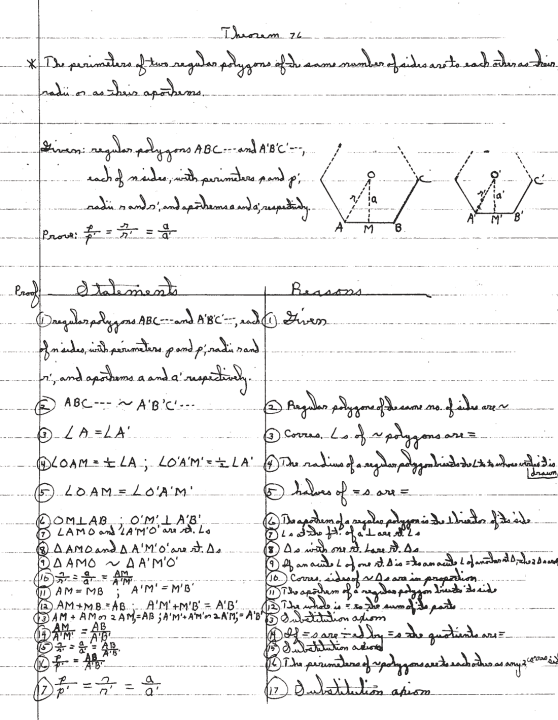 Theorem 76
* The perimeters of two regular polygons of the same number of sides are to each other as their
radii or as their apothems.
Given: regular polygons ABC--- and A'B'C'---,
each of n sides, with perimeters p and p',
radii r and r', and apothems a and a', respectively.
Prove: p/p' = r/r' = a/a'
O C r a A M B
O' C' r' a' A' M' B'
Proof Statements Reasons
① regular polygons ABC--- and A'B'C'---, each ① Given
of n sides, with perimeters p and p', radii r and
r', and apothems a and a' respectively.
② ABC--- ~ A'B'C'--- ② Regular polygons of the same no. of sides are ~
③ ∠A = ∠A' ③ Corres. ∠s of ~ polygons are =
④ ∠OAM = ½ ∠A ; ∠O'A'M' = ½ ∠A' ④ The radius of a regular polygon bisects the ∠ to whose vertex it is
drawn
⑤ ∠OAM = ∠O'A'M' ⑤ halves of =s are =
⑥ OM ⊥ AB ; O'M' ⊥ A'B' ⑥ The apothem of a regular polygon is the ⊥ bisector of the side
⑦ ∠AMO and ∠A'M'O' are rt. ∠s ⑦ ∠s at the ft. of a ⊥ are rt. ∠s
⑧ △AMO and △A'M'O' are rt. △s ⑧ △s with one rt. ∠ are rt. △s
⑨ △AMO ~ △A'M'O' ⑨ If an acute ∠ of one rt. △ is = to an acute ∠ of another rt. △, the 2 △s are ~
⑩ r/r' = a/a' = AM/A'M' ⑩ Corres. sides of ~ △s are in proportion
⑪ AM = MB ; A'M' = M'B' ⑪ The apothem of a regular polygon bisects its side
⑫ AM + MB = AB ; A'M' + M'B' = A'B' ⑫ The whole is = to the sum of its parts
⑬ AM + AM or 2AM = AB ; A'M' + A'M' or 2A'M' = A'B' ⑬ Substitution axiom
⑭ AM/A'M' = AB/A'B' ⑭ If =s are ÷ed by =s the quotients are =
⑮ r/r' = a/a' = AB/A'B' ⑮ Substitution axiom
⑯ p/p' = AB/A'B' ⑯ The perimeters of ~ polygons are to each other as any 2 corres.
⑰ p/p' = r/r' = a/a' ⑰ Substitution axiom